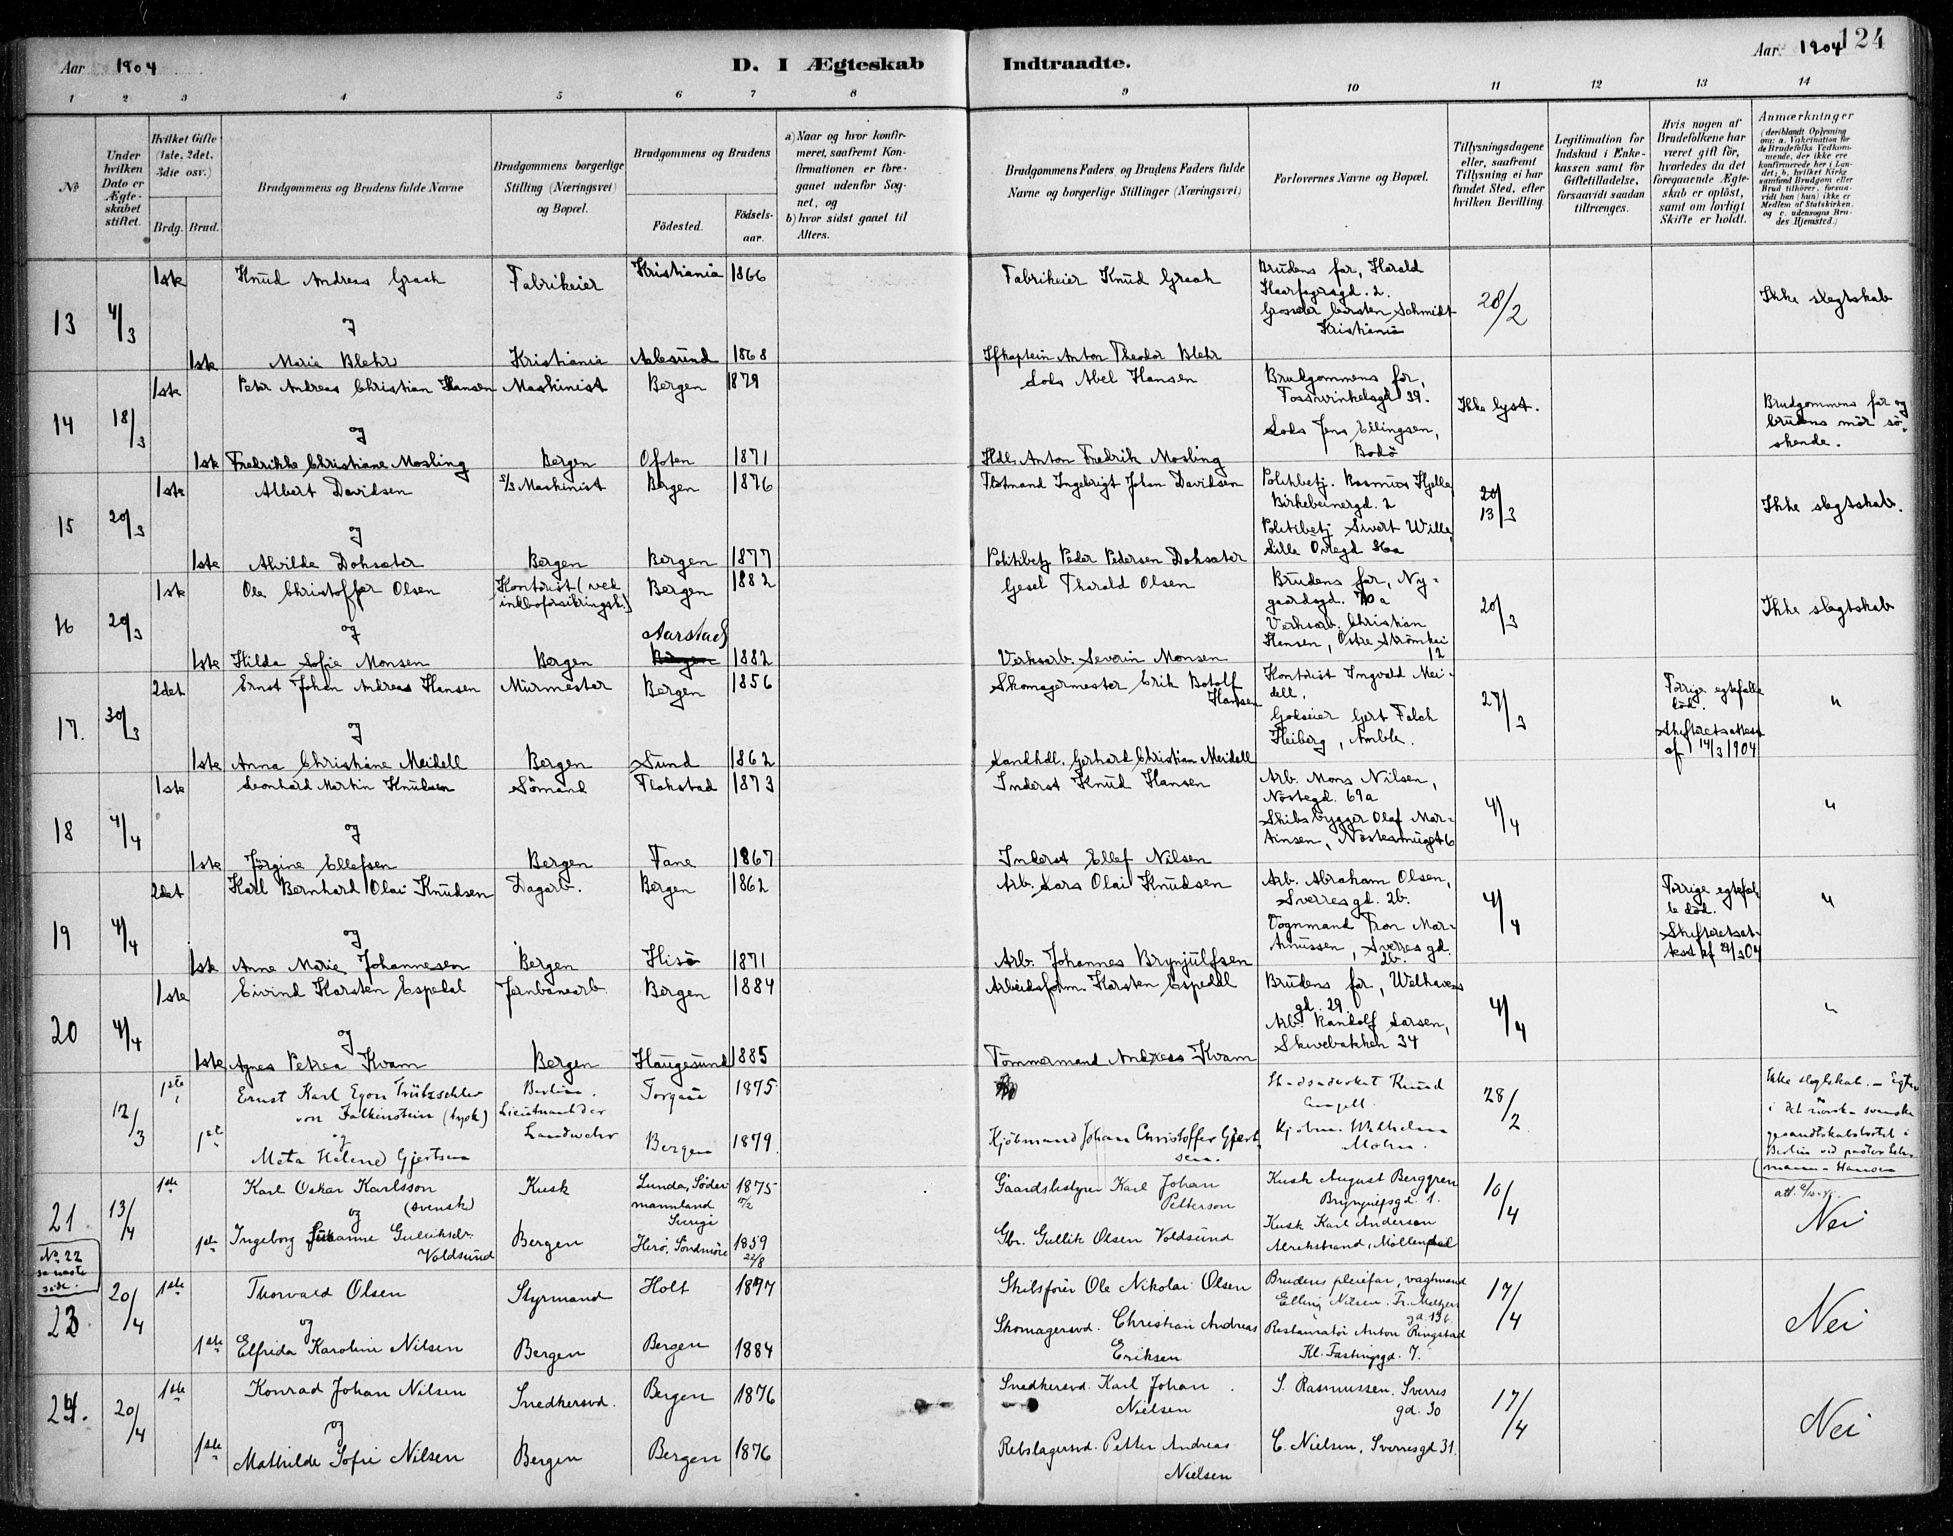 Aar 1904
D. I Ægteskab Indtraadte.
Aar. 1904 124
1 2 3 4 5 6 7 8 9 10 11 12 13 14
No
Under hvilken Dato er Ægteskabet stiftet.
Hvilket Gifte (1ste, 2det, 3die osv.)
Brdg. Brud.
Brudgommens og Brudens fulde Navne
Brudgommens borgerlige Stilling (Næringsvei) og Bopæl.
Brudgommens og Brudens
Födested. Födselsaar.
a) Naar og hvor konfirmeret, saafremt Konfirmationen er foregaaet udenfor Sognet, og
b) hvor sidst gaaet til Alters.
Brudgommens Faders og Brudens Faders fulde Navne og borgerlige Stillinger (Næringsvei)
Forlovernes Navne og Bopæl.
Tillysningsdagene eller, saafremt Tillysning ei har fundet Sted, efter hvilken Bevilling.
Legitimation for Indskud i Enkekassen samt for Giftetilladelse, forsaavidt saadan tiltrænges.
Hvis nogen af Brudefolkene har været gift før, hvorledes da det foregaaende Ægteskab er oplöst, samt om lovligt Skifte er holdt.
Anmærkninger
(deriblandt Oplysning om: a. Vakcination for de Brudefolks Vedkommende, der ikke ere konfirmerede her i Landet; b. hvilket Kirkesamfund Brudgom eller Brud tilhörer, forsaavidt han (hun) ikke er Medlem af Statskirken, og c. udensogns Brudes Hjemsted.)
13 4/3 1ste Knud Andreas Graah Fabrikeier Kristiania 1866 Fabrikeier Knud Graah
Brudens far, Harald
Haarfagersgd. 2.
Grosserer Carsten Schmidt
Kristiania
28/2 Ikke slegtskab
og
1ste Maria Blehr Kristiania Aalesund 1868 Ifkaptein Anton Theodor Blehr
14 18/3 1ste Peter Andreas Christian Hansen Maskinist Bergen 1879 Lods Abel Hansen
Brudgommens far,
Fosswinkelsgd 39.
Lods Jens Ellingsen,
Bodö
Ikke lyst.
Brudgommens far og
brudens mor sö-
skende.
og
1ste Fredrikke Christiane Mosling Bergen Ofoten 1871 Hdl. Anton Fredrik Mosling
15 20/3 1ste Albert Davidsen s/s Maskinist Bergen 1876 Ingebrigt Johan Davidsen
Politibetj. Rasmus Hjelle
Birkebeinergd. 2
Politibetj Sivert Wille,
Lille Övregd 36a
20/13/3 Ikke slegtskab.
og
1ste Alvilde Dohsæter Bergen Bergen 1877 Politibetj Peder Pedersen Dohsæter
16 20/3 1ste Ole Christoffer Olsen Kontorist (ved Bergen 1882 Gesel Tharald Olsen
Brudens far, Ny-
gaardsgd. 70a
Verksarb. Christian
Hansen, Östre Strömkai
12
20/3 Ikke slegtskab
og Aarstad
1ste Hilda Sofie Monsen Bergen Bergen 1882 Verksarb. Severin Monsen
17. 30/3 2det Ernst Johan Andreas Hansen Murmester Bergen 1856 Skomagermester Erik Botolf
Hansen
Kontorist Ingvald Mei-
dell,
Godseier Gert Falch
Heiberg, Amble.
27/3
Forrige egtefelle
död.
Skifteretsattest
af 14/3 1904
"
og
1ste Anna Christiane Meidell Bergen Sund 1862 Landhdl. Gerhard Christian Meidell
18 4/4 1ste Leonhard Martin Knudsen Sömand Flakstad 1873 Inderst Knud Hansen
Arb. Mons Nilsen,
Nöstegd. 69a
Skibsbygger Olaf Mar-
tinsen, Nöstesmuget 6
4/4 "
og
1ste Jörgine Ellefsen Bergen Fane 1867 Inderst Ellef Nilsen
19 4/4 2det Karl Bernhard Olai Knudsen Dagarb. Bergen 1862 Arb. Lars Olai Knudsen
Arb. Abraham Olsen,
Sverresgd. 2b.
Vognmand Tron Mar-
tinussen, Sverresgd.
2b.
4/4
Forrige egtefel-
le död.
Skifteretsat-
test af
"
og
1ste Anne Marie Johannesen Bergen Hisö 1871 Arb. Johannes Brynjulfsen
20 4/4 1ste Eivind Karsten Espedal Jernbanearb. Bergen 1884 Arbeidsform. Karsten Espedal
Brudens far, Welhavens
gd. 29
Arb. Randolf Larsen,
Skivebakken 34
4/4 "
og
1ste Agnes Petrea Kvam Bergen Haugesund 1885 Tömmermand Andreas Kvam
12/3 1ste Ernst Karl Egon Trützschler
von Falkenstein (tysk)
Berlin.
Lieutnant der
Landwehr
Torgau 1875
Stadsadvokat Knud
28/2
Ikke slegtskab. – Egtev.
i det norsk svenske
gesandtskabshotel i
Berlin ved pastor
- Hansen
og
1ste Meta Helene Gjertsen Bergen 1879. Kjöbmand Johan Christoffer Gjert-
sen.
Kjøbm. Wilhelm
Mohn.
21 13/4 1ste Karl Oskar Karlsson
(svensk)
Kusk
Lunda, Söder
mannland
Sverige
1875
Gaardsbestyrer Karl Johan
Petterson
Kusk August Berggren
1.
Kusk Karl Anderson
Alrekstrand, Möllendal
10/4 Nei
og
1ste Ingeborg Susanne Gulliksdr.
Voldsund
Bergen Herö, Söndmöre 1859
22/8
Gbr. Gullik Olsen Voldsund
No. 22
se næste
side.
23 20/4 1ste Thorvald Olsen Styrmand Holt 1877 Skibsförer Ole Nikolai Olsen
Brudens pleiefar, vagtmand
Elling Nilsen. Fr. Meltzers
gd. 136.
Restauratör Anton Ringstad
Kl. Fastingsgd. 7.
17/4 Nei
og
1ste Elfrida Karoline Nilsen Bergen Bergen 1884 Skomagersvd. Christian Andreas
Eriksen
24. 20/4 1ste Konrad Johan Nilsen Snedkersvd. Bergen 1876 Snedkersvd. Karl Johan
Nielsen
S. Rasmussen. Sverres
gd. 30
17/4 Nei
og
1ste Mathilde Sofie Nilsen Bergen Bergen 1876 Rebslagersvd. Petter Andreas
Nielsen
C. Nielsen, Sverresgd 31.